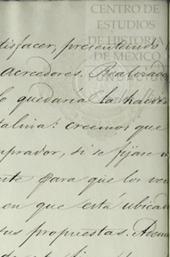 CENTRO DE
ESTUDIOS
DE HISTORIA
DE MEXICO
tisfacer, presentando
acreedores. Realizado
lo quedaria la hacien
talina: creemos que
mprador, si se fijase
nte para que los ven
en que está ubicad
sus propuestas.